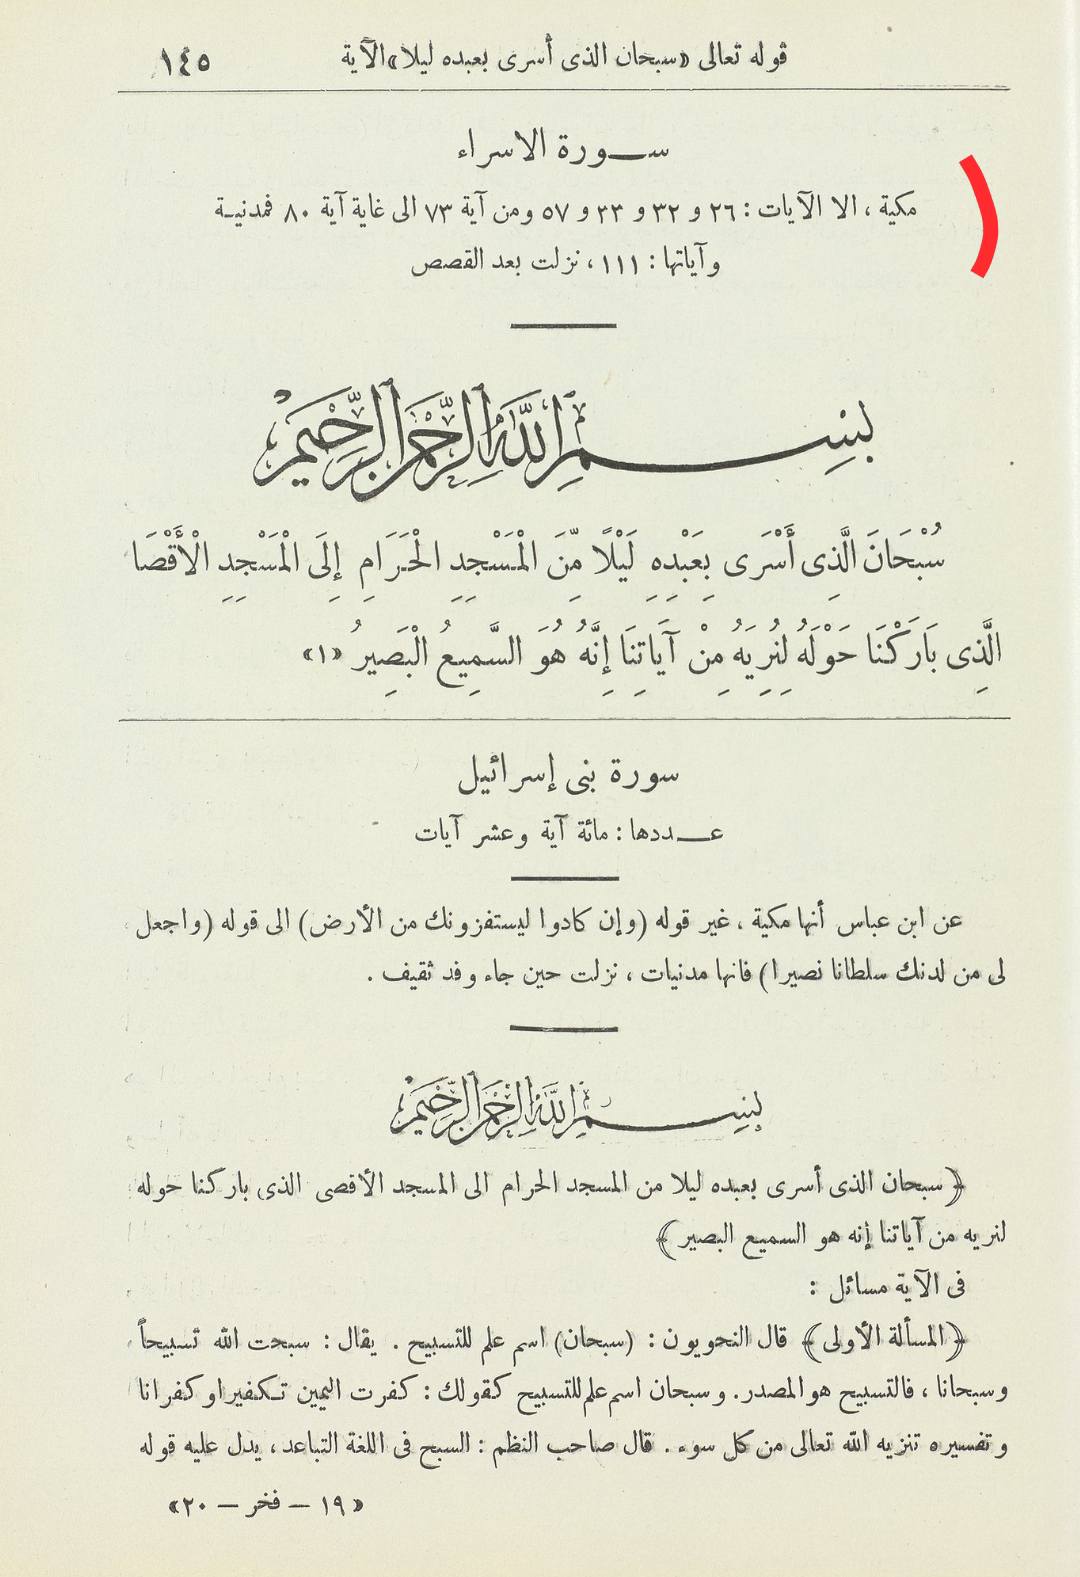 قوله تعالى «سبحان الذى أسرى بعبده ليلا» الآية ١٤٥
ســورة الاسراء
مكية ، الا الآيات : ٢٦ و ٣٢ و ٣٣ و ٥٧ ومن آية ٧٣ الى غاية آية ٨٠ فمدنيـة
وآياتها : ١١١ ، نزلت بعد القصص
بِسْمِ اللَّهِ الرَّحْمَنِ الرَّحِيمِ
سُبْحَانَ الَّذِى أَسْرَى بِعَبْدِهِ لَيْلًا مِّنَ الْمَسْجِدِ الْحَرَامِ إِلَى الْمَسْجِدِ الْأَقْصَا
الَّذِى بَارَكْنَا حَوْلَهُ لِنُرِيَهُ مِنْ آيَاتِنَا إِنَّهُ هُوَ السَّمِيعُ الْبَصِيرُ «١»
سورة بنى إسرائيل
عــددها : مائة آية وعشر آيات
عن ابن عباس أنها مكية ، غير قوله (وإن كادوا ليستفزونك من الأرض) الى قوله (واجعل
لى من لدنك سلطانا نصيرا) فانها مدنيات ، نزلت حين جاء وفد ثقيف .
بِسْمِ اللَّهِ الرَّحْمَنِ الرَّحِيمِ
﴿سبحان الذى أسرى بعبده ليلا من المسجد الحرام الى المسجد الأقصى الذى باركنا حوله
لنريه من آياتنا إنه هو السميع البصير﴾
فى الآية مسائل :
﴿المسألة الأولى﴾ قال النحويون : (سبحان) اسم علم للتسبيح . يقال : سبحت الله تسبيحاً
وسبحانا ، فالتسبيح هو المصدر. وسبحان اسم علم للتسبيح كقولك : كفرت اليمين تكفيرا وكفرانا
وتفسيره تنزيه الله تعالى من كل سوء . قال صاحب النظم : السبح فى اللغة التباعد ، يدل عليه قوله
«١٩ – فخر – ٢٠»